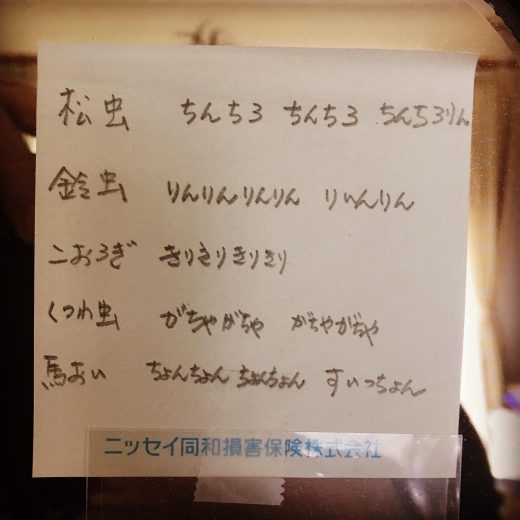 松虫 ちんちろ ちんちろ ちんちろりん
鈴虫 りんりんりんりん りいんりん
こおろぎ きりきりきりきり
くつわ虫 がちゃがちゃ がちゃがちゃ
馬おい ちょんちょんちょんちょん すいっちょん
ニッセイ同和損害保険株式会社